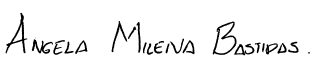 Angela Milena Bastidas.